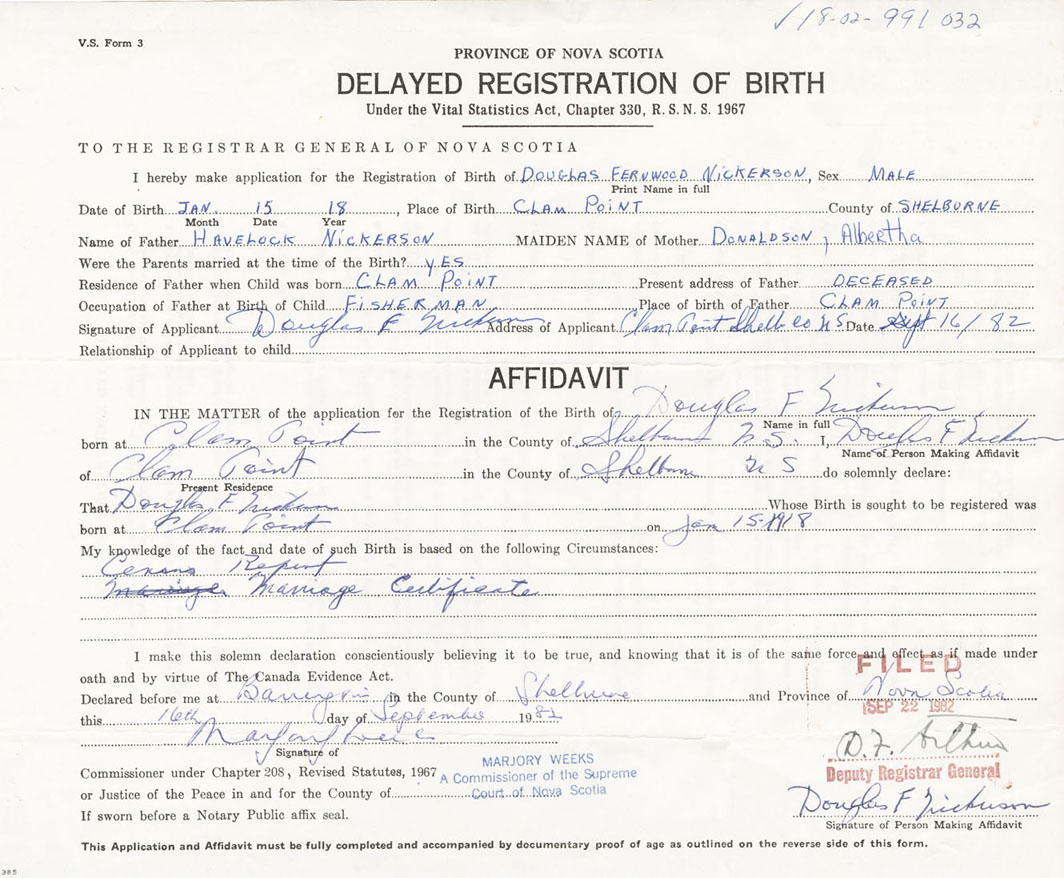 ✓18-02-991 032
V.S. Form 3
PROVINCE OF NOVA SCOTIA
DELAYED REGISTRATION OF BIRTH
Under the Vital Statistics Act, Chapter 330, R.S.N.S. 1967
TO THE REGISTRAR GENERAL OF NOVA SCOTIA
I hereby make application for the Registration of Birth of DOUGLAS FERNWOOD NICKERSON, Sex MALE
Print Name in full
Date of Birth JAN. 15 18, Place of Birth CLAM POINT County of SHELBURNE
Month Date Year
Name of Father HAVELOCK NICKERSON MAIDEN NAME of Mother DONALDSON, Albertha
Were the Parents married at the time of the Birth? YES
Residence of Father when Child was born CLAM POINT Present address of Father DECEASED
Occupation of Father at Birth of Child FISHERMAN Place of birth of Father CLAM POINT
Signature of Applicant Douglas F Nickerson Address of Applicant Clam Point Shelb. co NS Date Sept 16/82
Relationship of Applicant to child
AFFIDAVIT
IN THE MATTER of the application for the Registration of the Birth of Douglas F Nickerson
Name in full
born at Clam Point in the County of Shelburne N.S. I, Douglas F Nickerson
Name of Person Making Affidavit
of Clam Point in the County of Shelburne N S do solemnly declare:
Present Residence
That Douglas F Nickerson Whose Birth is sought to be registered was
born at Clam Point on Jan 15-1918
My knowledge of the fact and date of such Birth is based on the following Circumstances:
Census Report
Marriage Certificate
I make this solemn declaration conscientiously believing it to be true, and knowing that it is of the same force and effect as if made under
oath and by virtue of The Canada Evidence Act.
FILED
Declared before me at Barrington in the County of Shelburne and Province of Nova Scotia
SEP 22 1982
this 16th day of September 1982
Marjory Weeks
Signature of
D.F. Arthur
Commissioner under Chapter 208, Revised Statutes, 1967
MARJORY WEEKS
A Commissioner of the Supreme
Court of Nova Scotia
Deputy Registrar General
or Justice of the Peace in and for the County of
Douglas F Nickerson
If sworn before a Notary Public affix seal.
Signature of Person Making Affidavit
This Application and Affidavit must be fully completed and accompanied by documentary proof of age as outlined on the reverse side of this form.
385